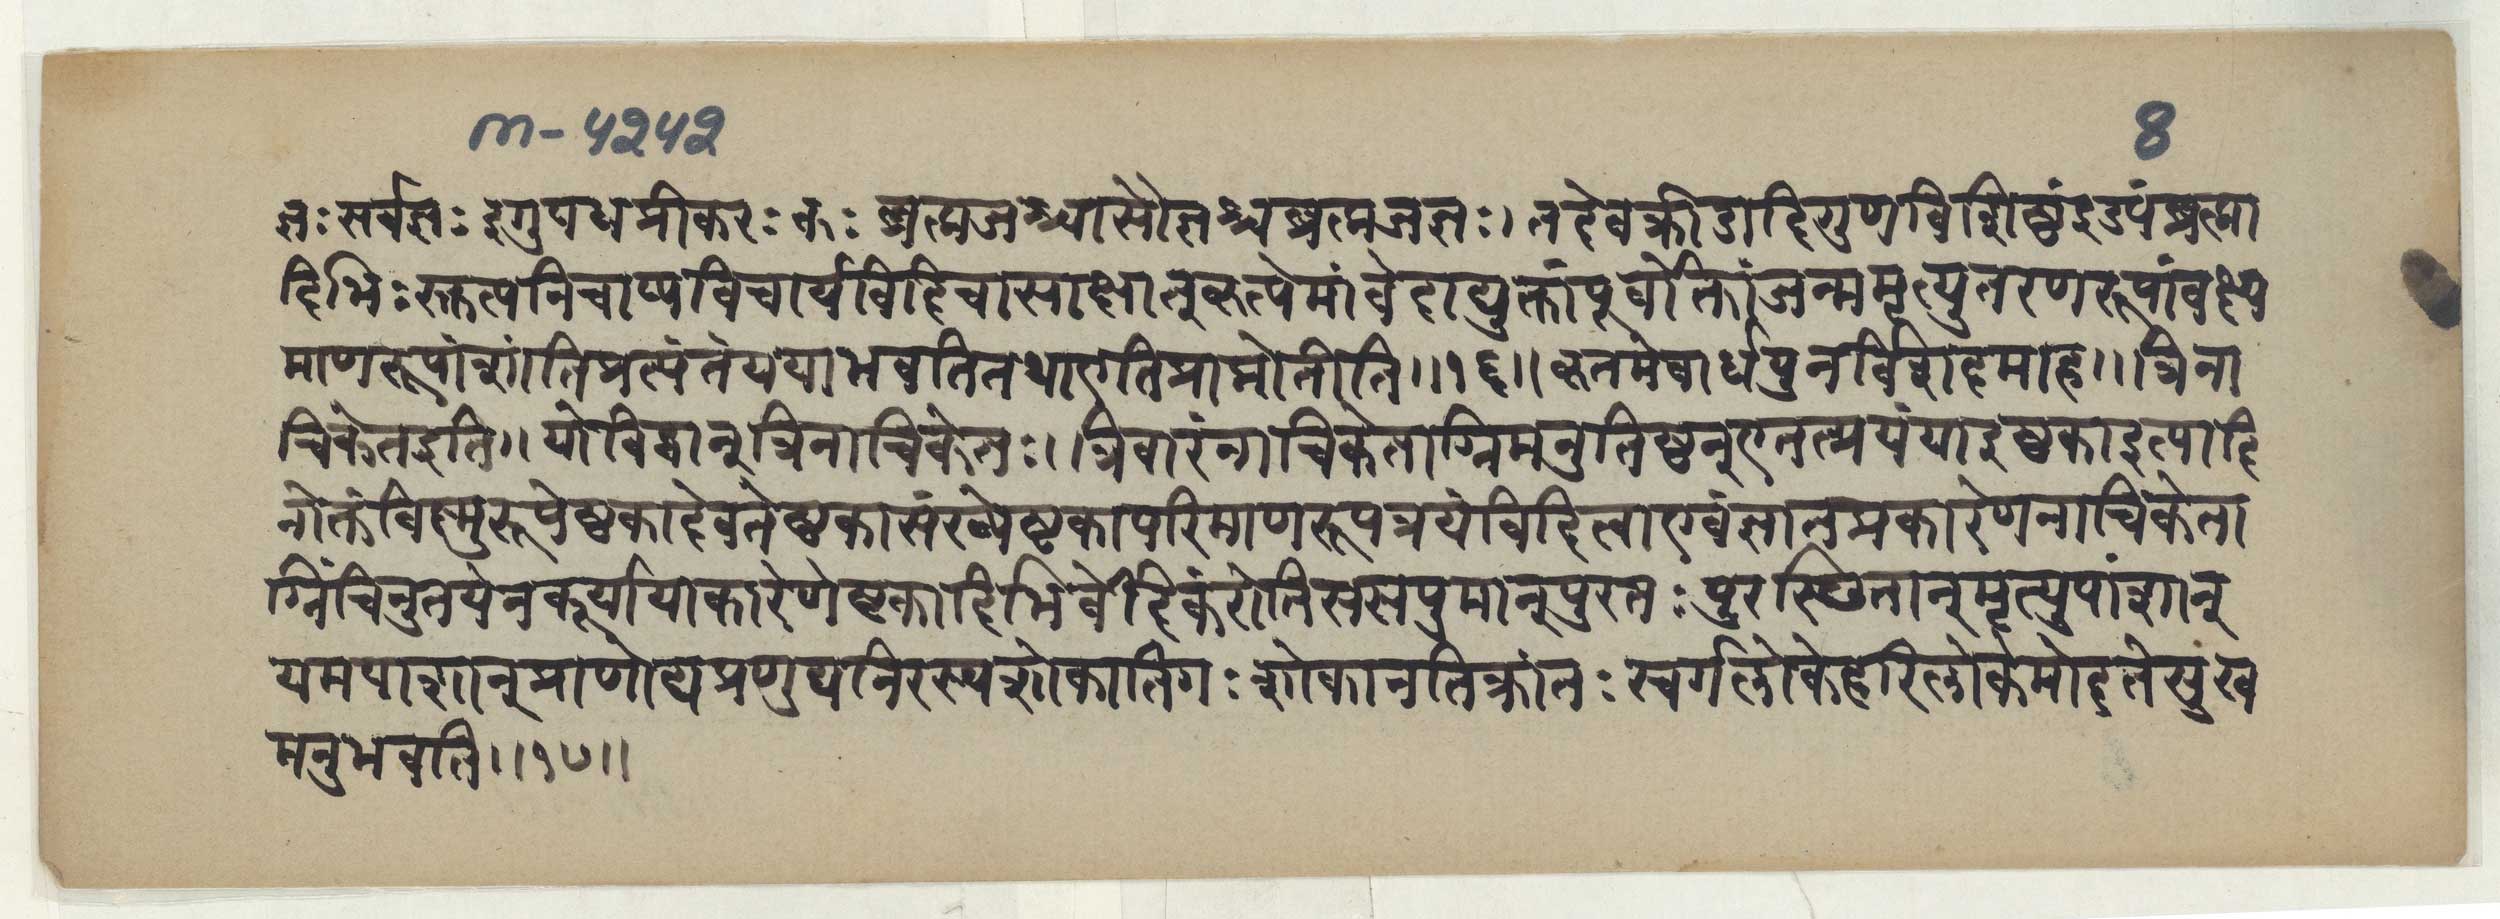 m-५२५२ 8
ज्ञः सर्वज्ञः इगुपधप्रीकरः कः ब्रह्मजश्चासौज्ञश्च ब्रह्मजज्ञः। तं देवं क्रीडादिगुणविशिष्टं इड्यं ब्रह्मा
दिभिः स्तुत्यं निचाय्य विचार्य विदित्वा साक्षात्कृत्येमां वेदाद्युक्तां पूर्वोक्तां जन्ममृत्युतरणरूपां वक्ष्य
माणरूपां शांतिमत्यंतं यथा भवति तथा एति प्राप्नोतीति॥१६॥ एतमेवार्थं पुनर्विशदमाह॥ त्रिना
चिकेत इति॥ यो विद्वान् त्रिनाचिकेतः। त्रिवारं नाचिकेताग्निमनुतिष्ठन् एतत्त्रयं या इष्टका इत्यादि
नोक्तं इष्टकादेवतेष्टकासंख्येष्टकापरिमाणरूपत्रयं विदित्वा एवं ज्ञातप्रकारेण नाचिकेता
ग्निं चिनुत येन इष्टकादिभिर्वेदिकं करोति स पुमान् पुरतः पुरस्थितान् मृत्युपाशान्
यमपाशान् प्राणोद्य प्रणुद्य निरस्य शोकातिगः शोकानतिक्रांतः स्वर्गलोके हरिलोके मोदते सुख
मनुभवति॥१७॥